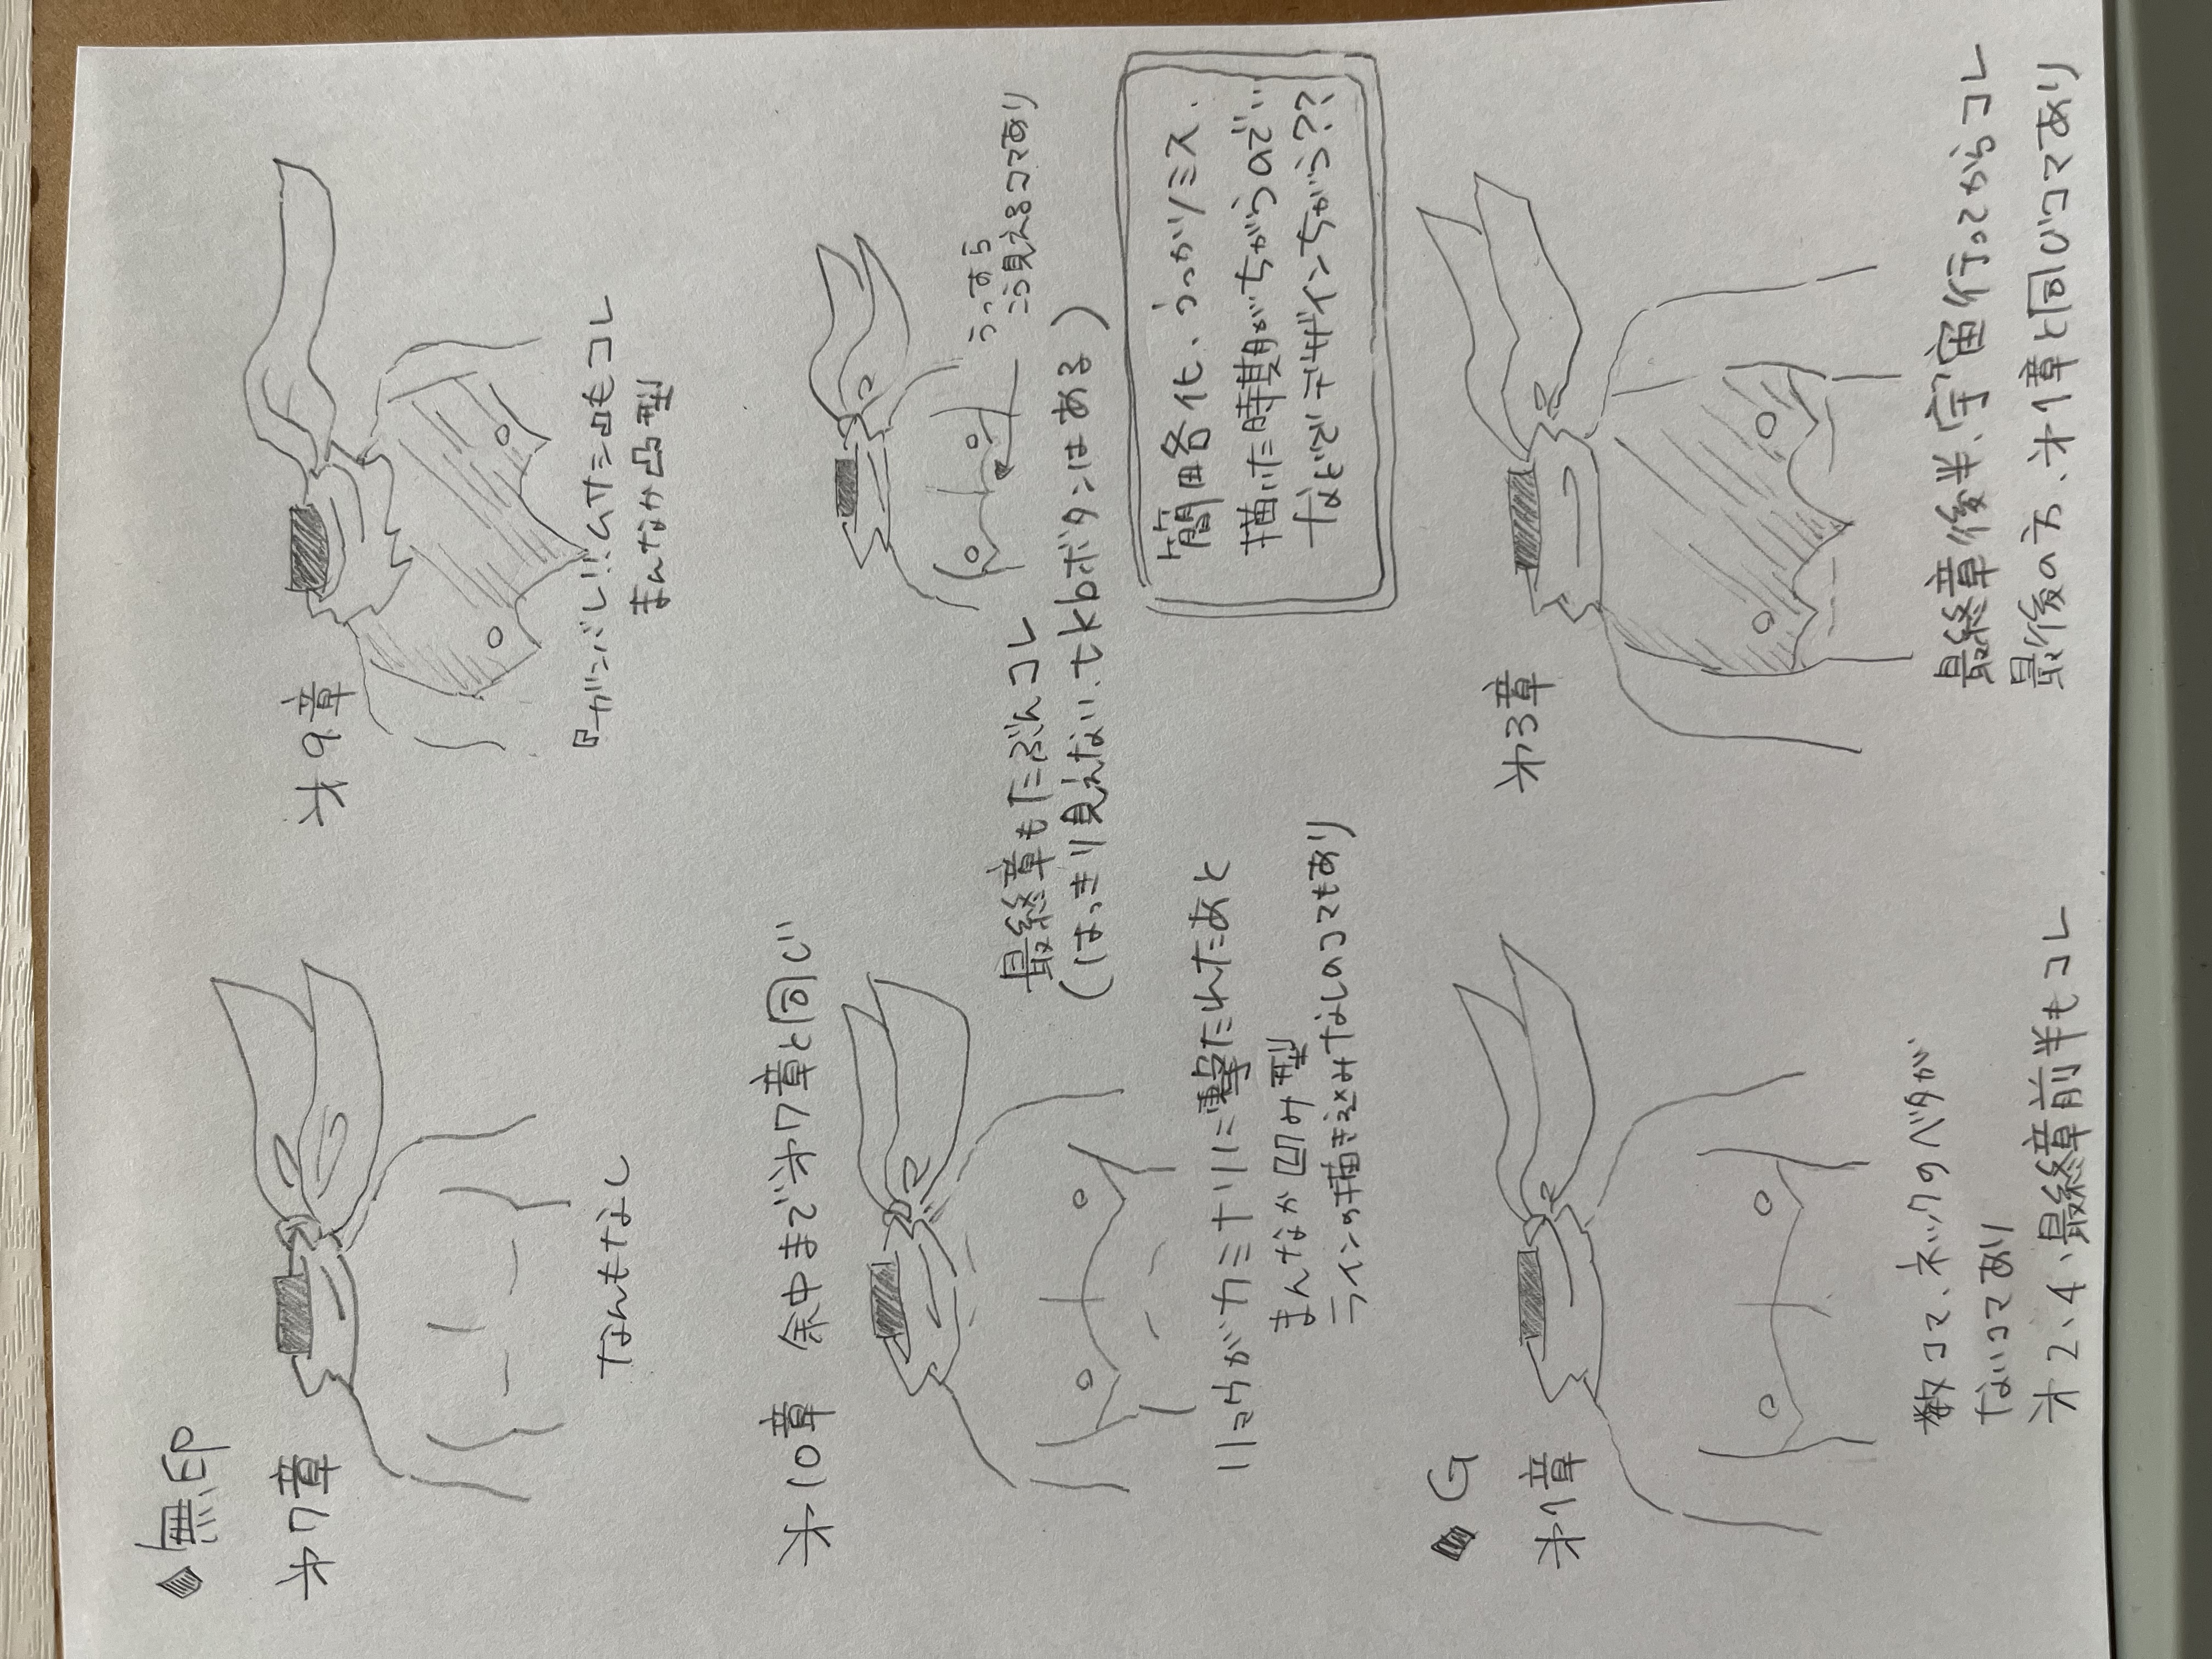 ◆無印
才7章
なんもなし
才9章
『ガンバレ!!ムサシロもコレ
まんなか凸型
才10章 余中まで才7章と同じ
リョウがカミナリに撃たれたあと
まんなか凹み型
ラインの描き込みなしのコマもあり
最終章もたぶんコレ
(はっきり見えない、tkbボタンはある)
うっすら
こう見えるコマあり
簡略化、うっかりミス、
描いた時期がちがうので…
などでデザインちがう??
◆G
才1章
数コマ、ネックのベタが
ないコマあり
才2、4、最終章前半もコレ
才3章
最終章後半、宇宙行ってからコレ
最後の方、才1章と同じコマあり